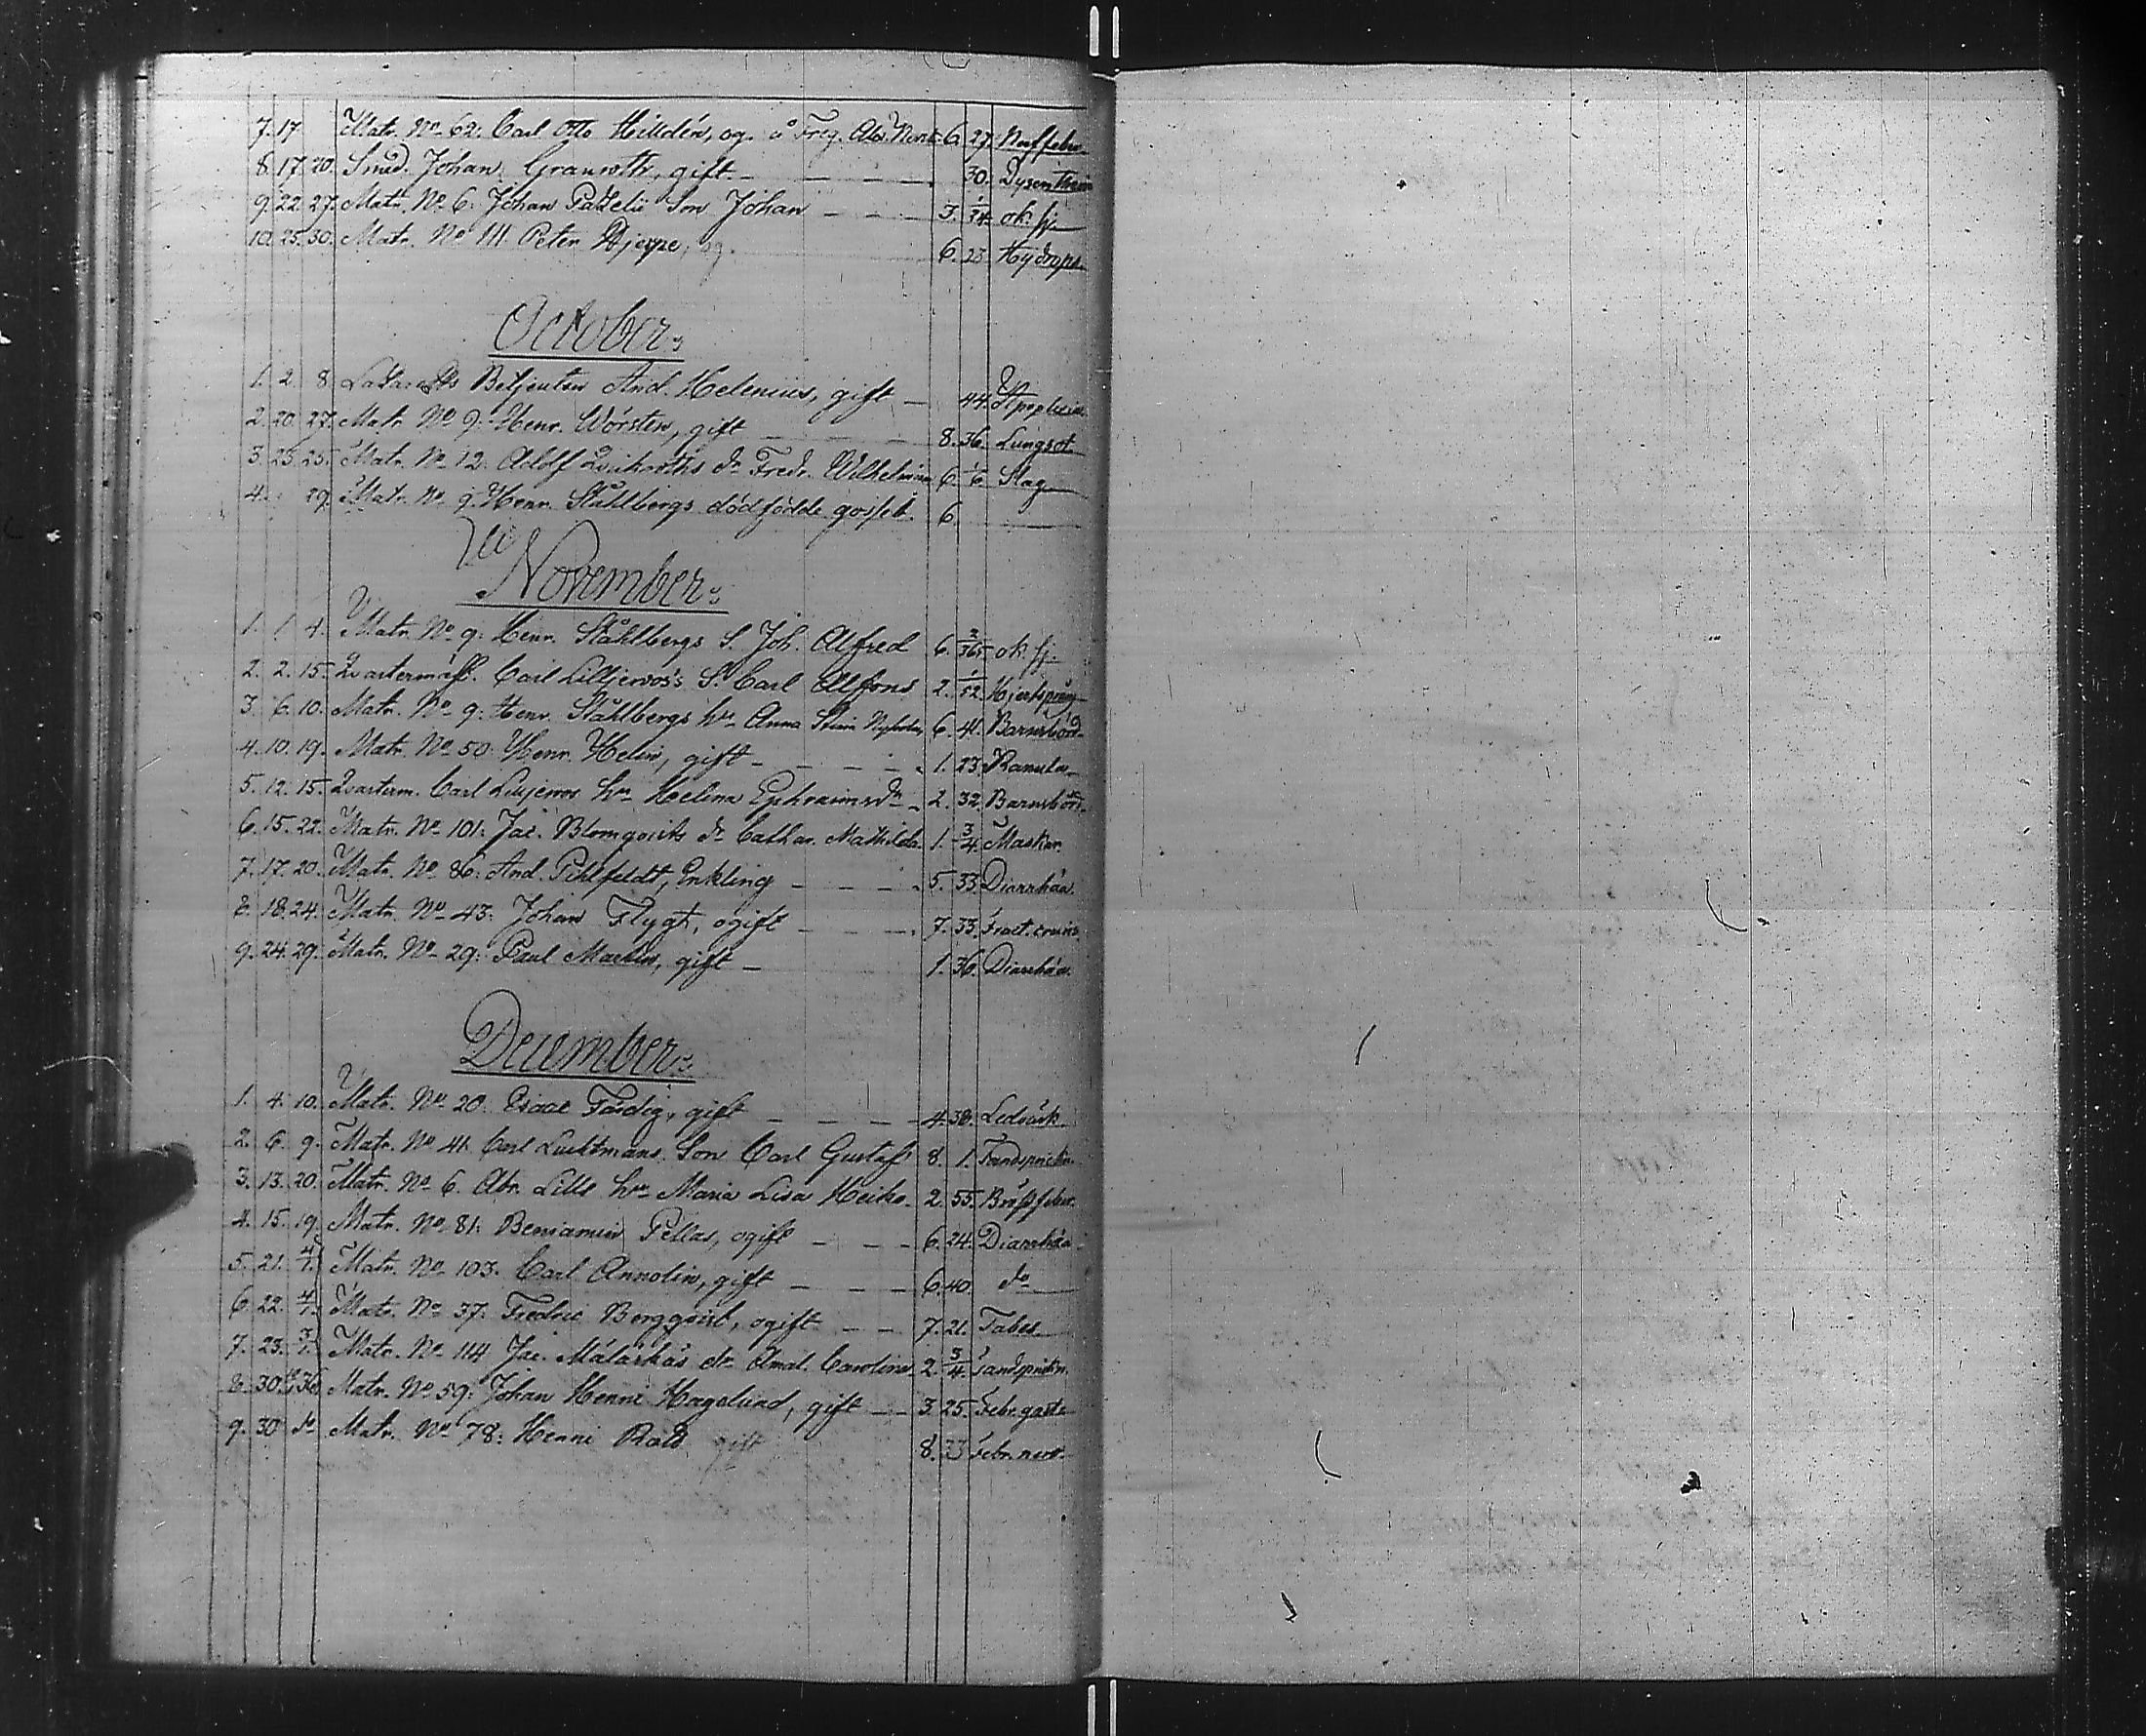 7. 17. Matr. No 62. Carl Otto Hilldén, og. å Freg. 6. 27.
8. 17. 20. Smed. Johan Granroth, gift 30. Dysenteria
9. 22. 27. Matr. No 6. Johan Son Johan 3. ok. sj.
10. 25. 30. Matr. No 111 Peter Hjerpe, og. 6. 23. Hydrops
October
1. 2. 8. Lazaretts Betjenten And. Helenius, gift 44. Apoplexie
2. 20. 27. Matr. No 9: Henr. Wörsten, gift 8. 36. Lungsot
3. 23. 25. Matr. No 12. Adolf dr Fredr. Wilhelmina 6. 1/6. Slag
4. 29. Matr. No 9. Henr. Ståhlbergs dödfödde gosseb. 6.
November
1. 1. 4. Matr. No 9: Henr. Ståhlbergs S. Joh. Alfred 6. 2/365 ok. sj.
2. 2. 15. Qvarterm. Carl Liljeroos's S. Carl Alfons 2. 1/52. Hjertsprång
3. 6. 10. Matr. No 9: Henr. Ståhlbergs hu Anna Stina 6. 41. Barnsbörd
4. 10. 19. Matr. No 50: Henr. Helin, gift 1. 23. Ranula
5. 12. 15. Qvarterm. Carl Liljeroos hu Helena Ephraimsdr 2. 32. Barnsbörd
6. 15. 22. Matr. No 101: Jac. Blomqvists dr Cathar. Mathilda 1. 3/4 Maskar
7. 17. 20. Matr. No 86: And. Pihlfeldt, Enkling 5. 33. Diarrhäa
8. 18. 24. Matr. No 43: Johan Flygt, ogift 7. 33. Fract. cruris
9. 24. 29. Matr. No 29: Paul Martin, gift 1. 36. Diarrhäa
December
1. 4. 10. Matr. No 20. Isaac Färdig, gift 4. 38. Ledvärk
2. 6. 9. Matr. No 41 Carl Lucktmans Son Carl Gustaf 8. 1. Tandsprickn.
3. 13. 20. Matr. No 6. Abr. Lills hu Maria Lisa Heiko 2. 55. Bröstfeber
4. 15. 19. Matr. No 81: Benjamin Pellas, ogift 6. 24. Diarrhäa
5. 21. 4/1. Matr. No 103. Carl Annolin, gift 6. 40. do
6. 22. 4/1. Matr. No 37: Fredric Bergqvist, ogift 7. 21. Tabes
7. 23. 3/1. Matr. No 114 Jac. dr Amal. Carolina 2. 3/4 Tandsprickn.
8. 30. Matr. No 59: Johan Henric Hagelund, gift 3. 25. Febr. gastr.
9. 30. do Matr. No 78: Henric Rald gift 8. 33 Febr. nerv.